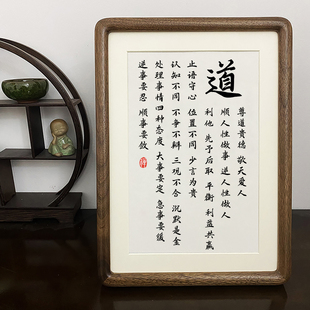 道
尊道贵德 敬天爱人
顺人性做事 逆人性做人
利他 先予后取 平衡 利益共赢
止语守心 位置不同 少言为贵
认知不同 不争不辩 三观不合 沉默是金
处理事情四种态度 大事要定 急事要缓
逆事要忍 顺事要敛